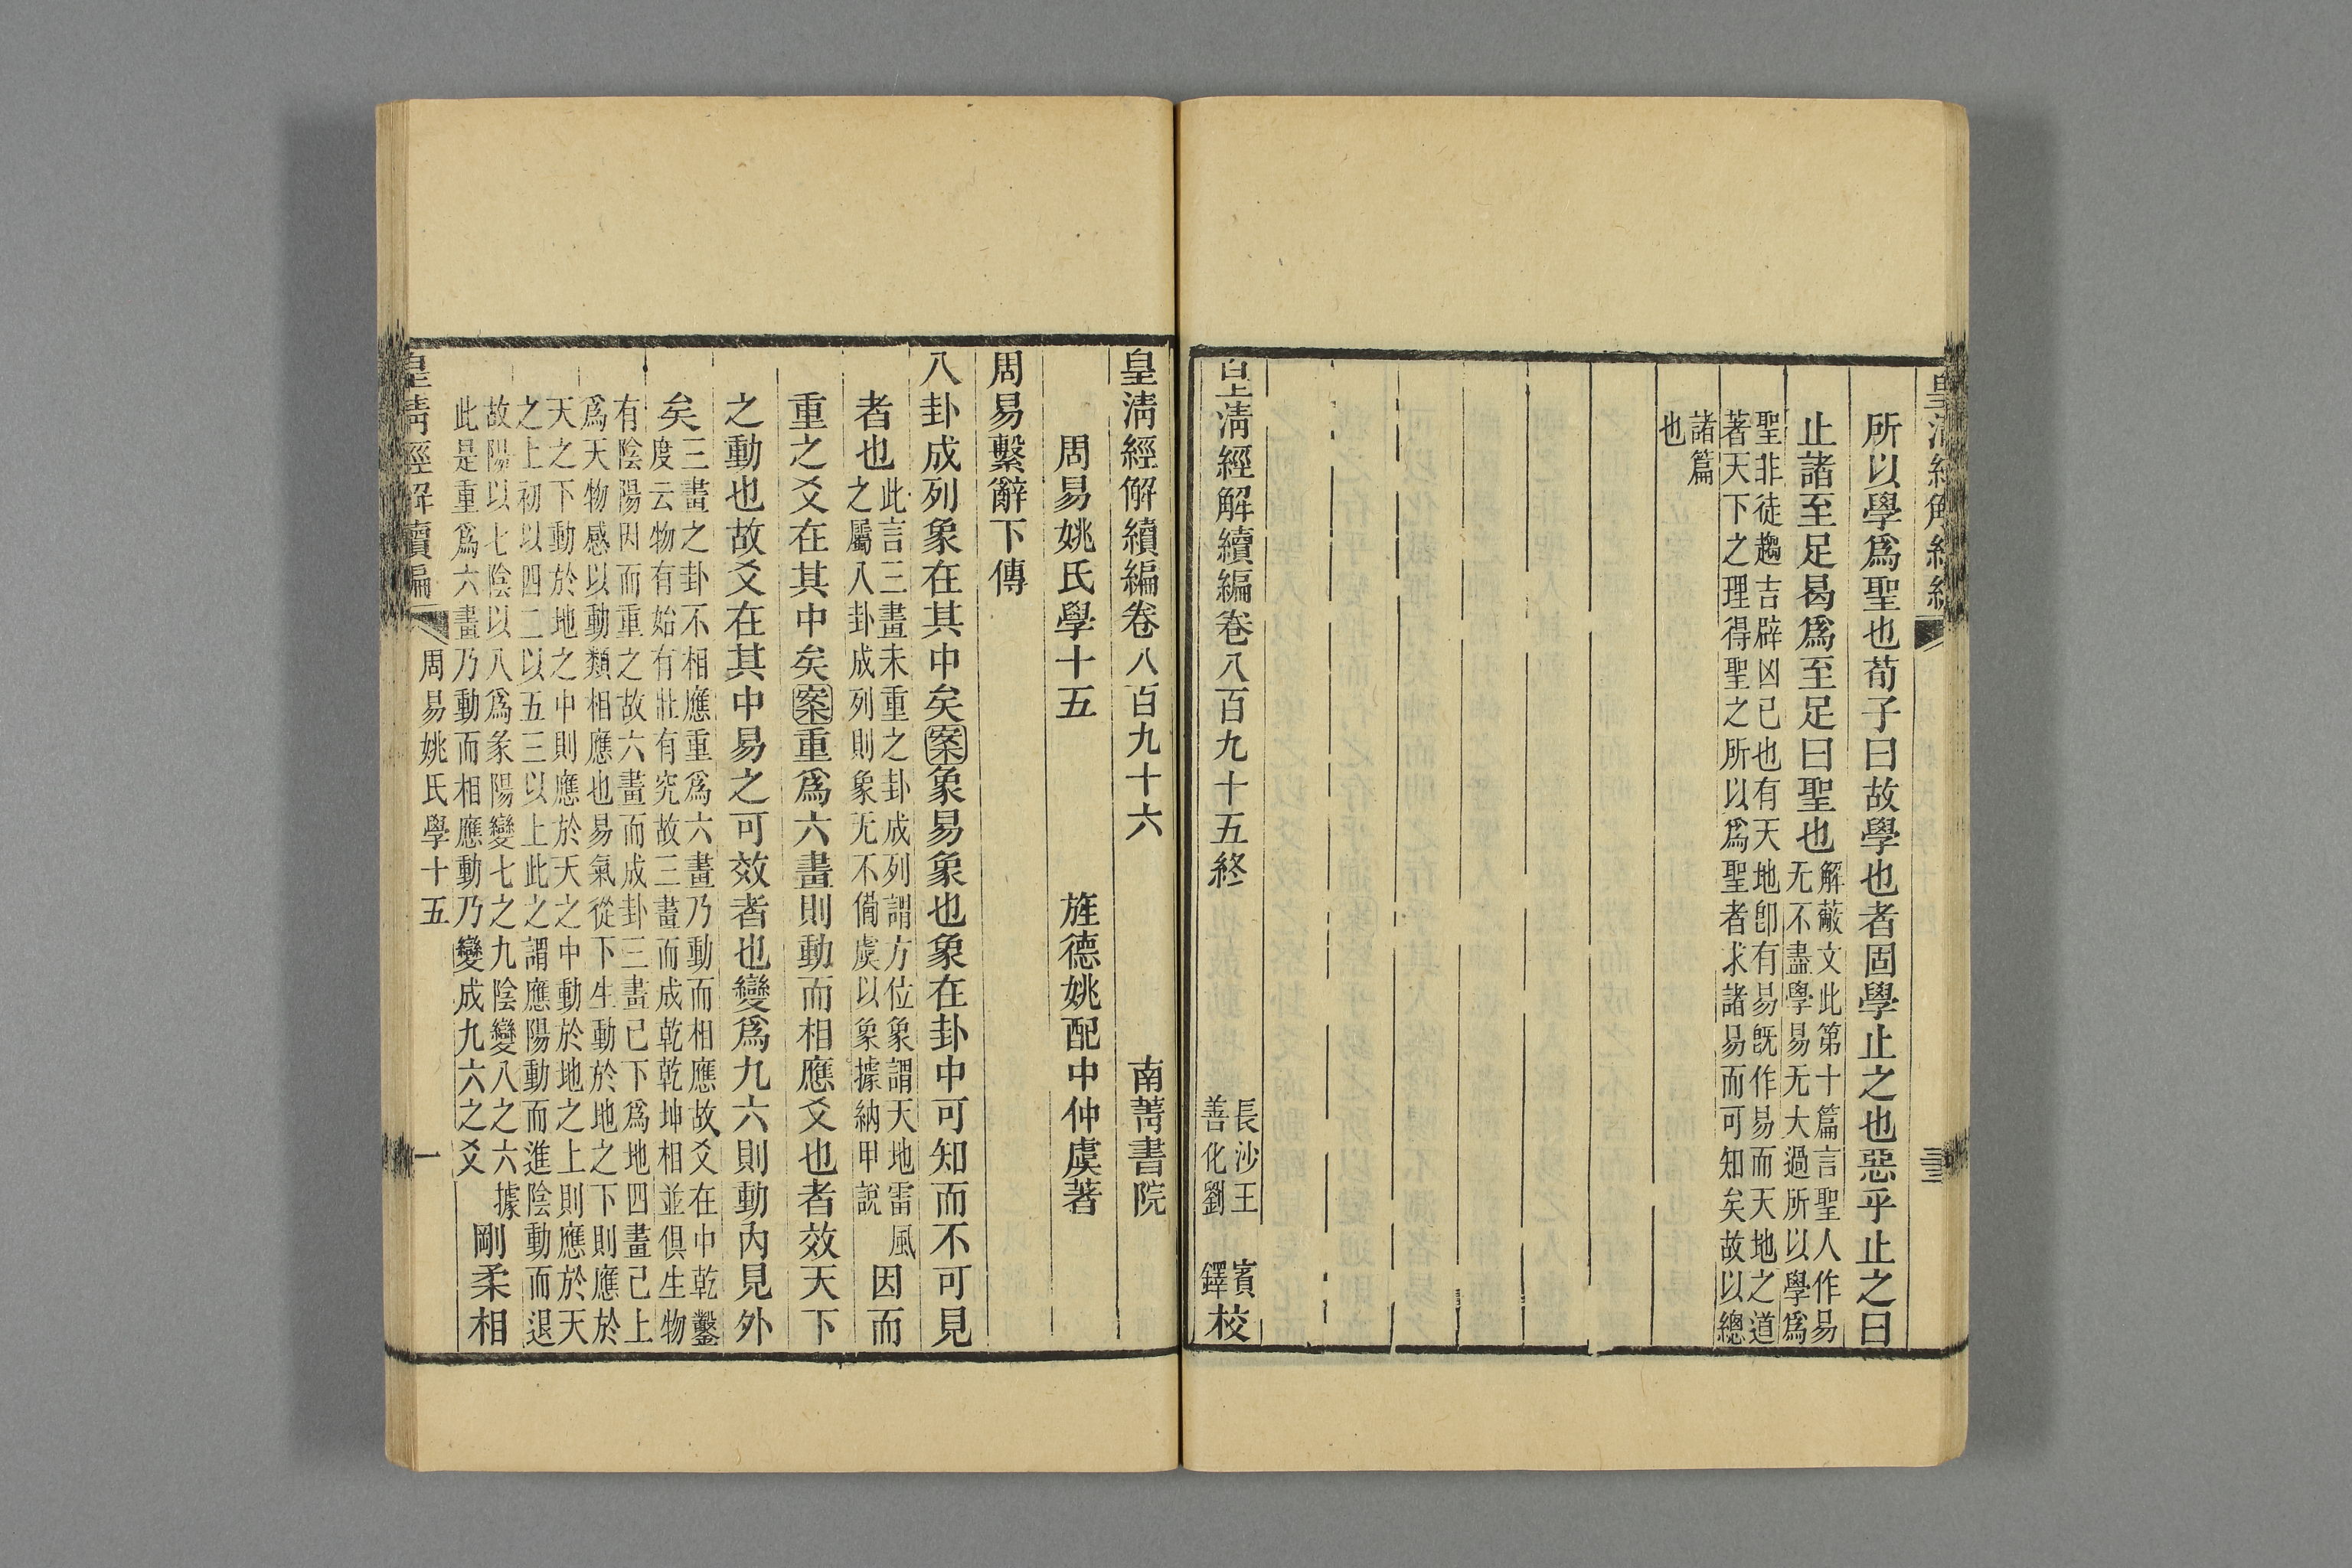 所以學爲聖也荀子曰故學也者固學止之也惡乎止之曰
止諸至足曷爲至足曰聖也解蔽文此第十篇言聖人作易
无不盡學易无大過所以學爲
聖非徒趨吉辟凶已也有天地卽有易旣作易而天地之道
著天下之理得聖之所以爲聖者求諸易而可知矣故以總
諸篇
也
皇淸經解續編卷八百九十五終
長沙王賓
善化劉鐸
校
皇淸經解續編卷八百九十六
南菁書院
周易姚氏學十五
旌德姚配中仲虞著
周易繫辭下傳
八卦成列象在其中矣案象易象也象在卦中可知而不可見
者也此言三畫未重之卦成列謂方位象謂天地雷風
之屬八卦成列則象无不備虞以象據納甲說
因而
重之爻在其中矣案重爲六畫則動而相應爻也者效天下
之動也故爻在其中易之可效者也變爲九六則動內見外
矣三畫之卦不相應重爲六畫乃動而相應故爻在中乾鑿
度云物有始有壯有究故三畫而成乾乾坤相並俱生物
有陰陽因而重之故六畫而成卦三畫已下爲地四畫已上
爲天物感以動類相應也易氣從下生動於地之下則應於
天之下動於地之中則應於天之中動於地之上則應於天
之上初以四二以五三以上此之謂應陽動而進陰動而退
故陽以七陰以八爲彖陽變七之九陰變八之六據
此是重爲六畫乃動而相應動乃變成九六之爻
剛柔相
皇淸經解續編
周易姚氏學十五
一